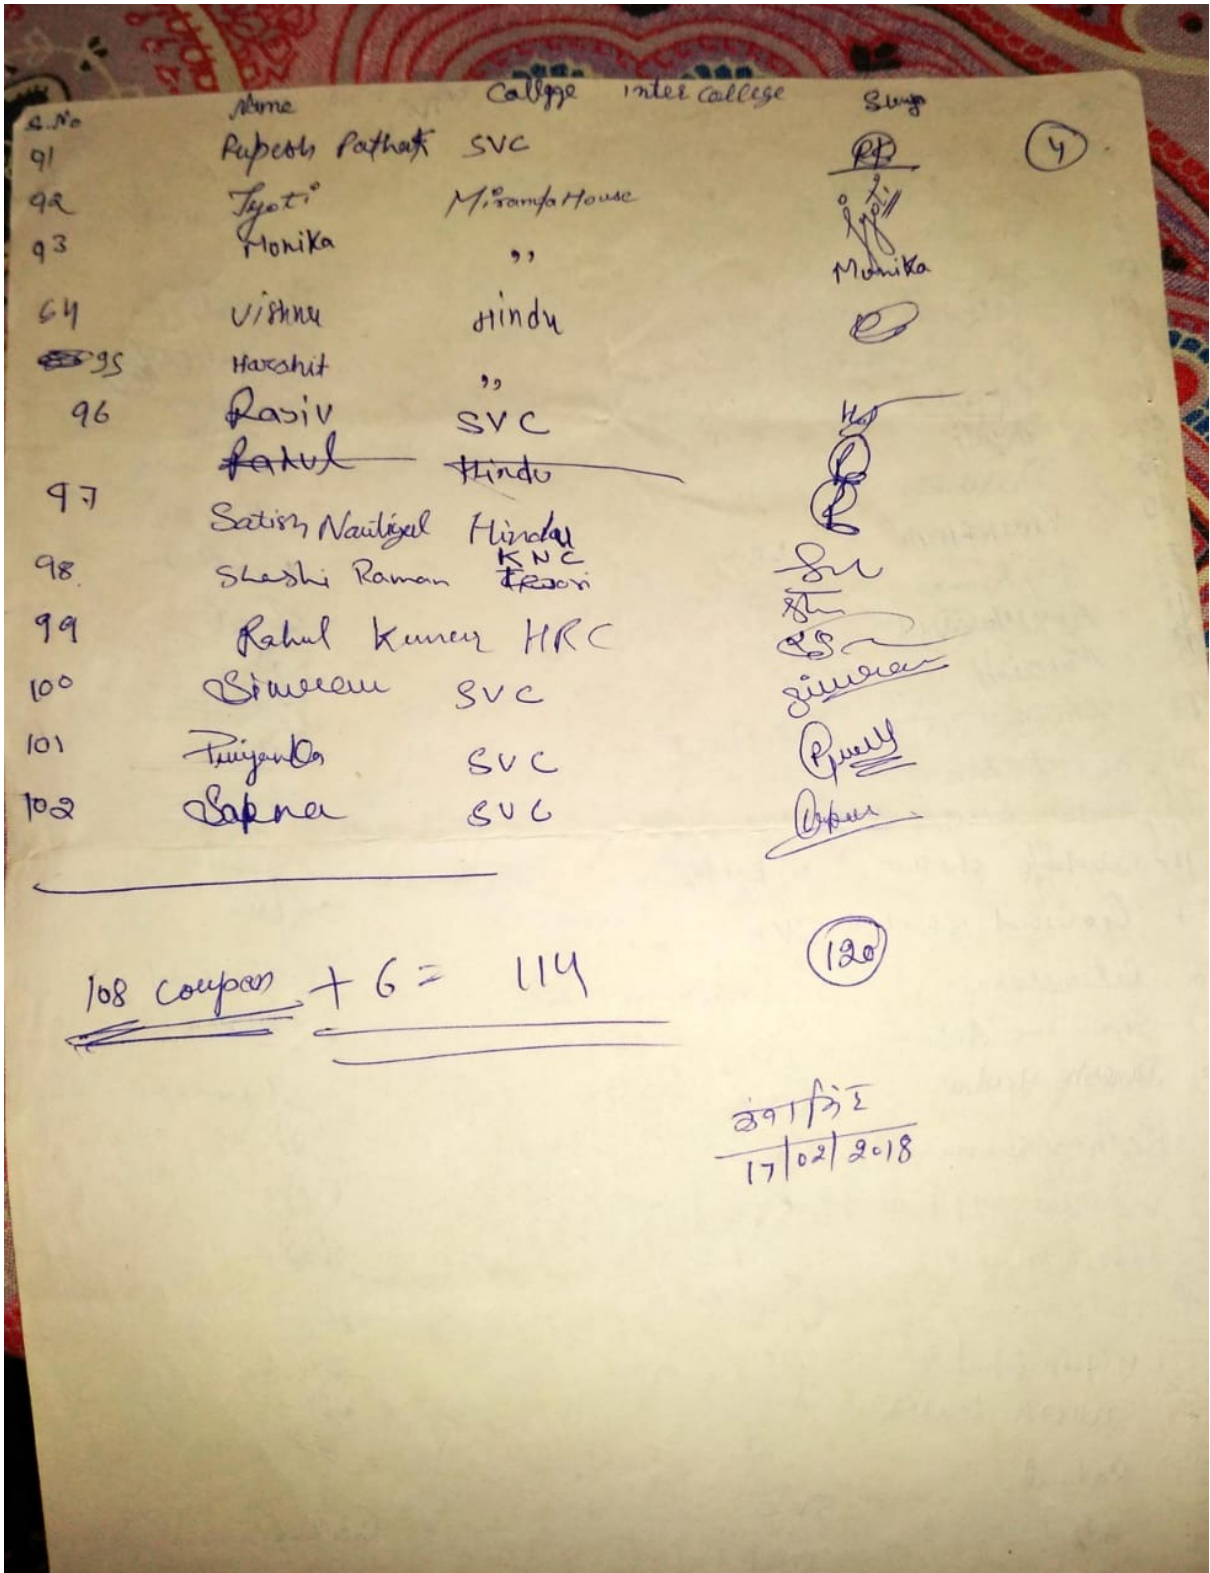 S.No Name College Inter College
91 Rupesh Pathak SVC
4
92 Jyoti Miranda House Jyoti
93 Monika ,, Monika
64 Vishnu Hindu
95 Harshit ,,
96 Rajiv SVC
Rahul Hindu
97 Satish Nautiyal Hindu
98. Shashi Raman KNC
99 Rahul Kumar HRC
100 Simran SVC Simran
101 Priyanka SVC
102 Sapna SVC
108 coupon + 6 = 114
120
17/02/2018